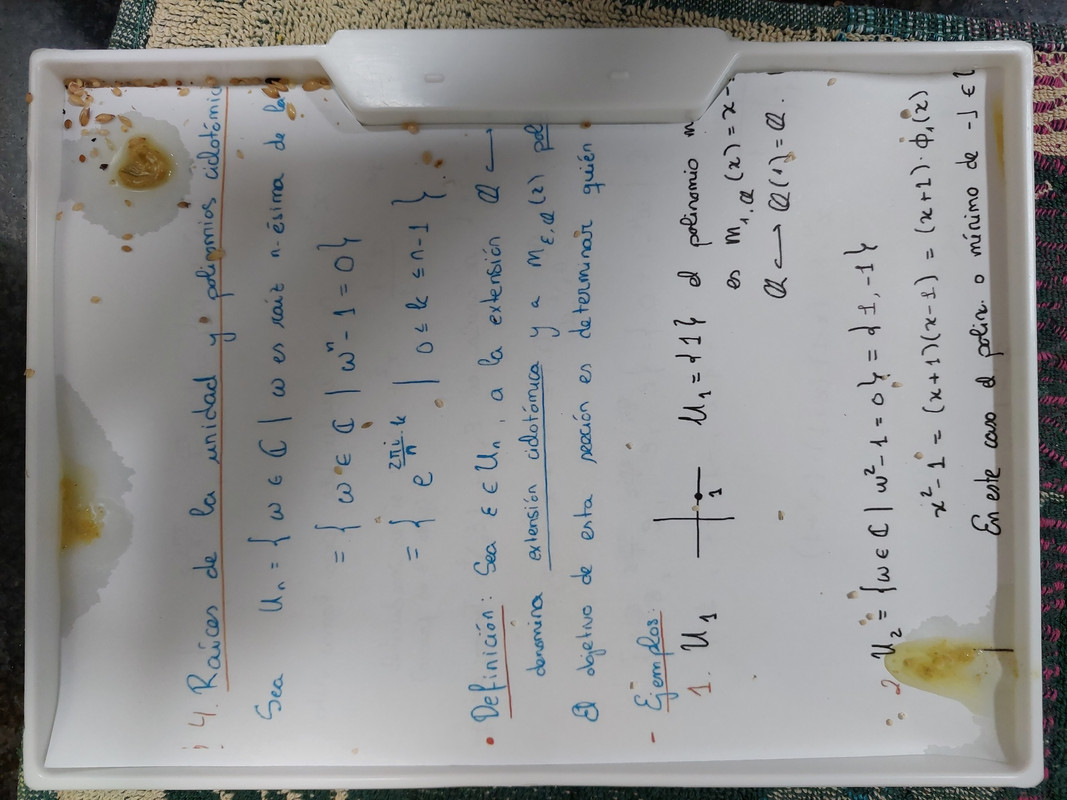 4. Raíces de la unidad y polinomios ciclotómic
Sea Uₙ = { ω ∈ ℂ | ω es raíz n-ésima de la
= { ω ∈ ℂ | ωⁿ - 1 = 0 }
= { e^(2πi/n · k) | 0 ≤ k ≤ n-1 }
• Definición: Sea ε ∈ Uₙ, a la extensión ℚ ↪
denomina extensión ciclotómica y a m_{ε,ℚ}(x) pol
El objetivo de esta sección es determinar quién
- Ejemplos:
1. U₁ 1 U₁ = {1} el polinomio m
es m_{1,ℚ}(x) = x-
ℚ ↪ ℚ(1) = ℚ.
2. U₂ = {ω ∈ ℂ | ω² - 1 = 0} = {1, -1}
x² - 1 = (x+1)(x-1) = (x+1)·ϕ₁(x)
En este caso el polin. o mínimo de -1 ∈